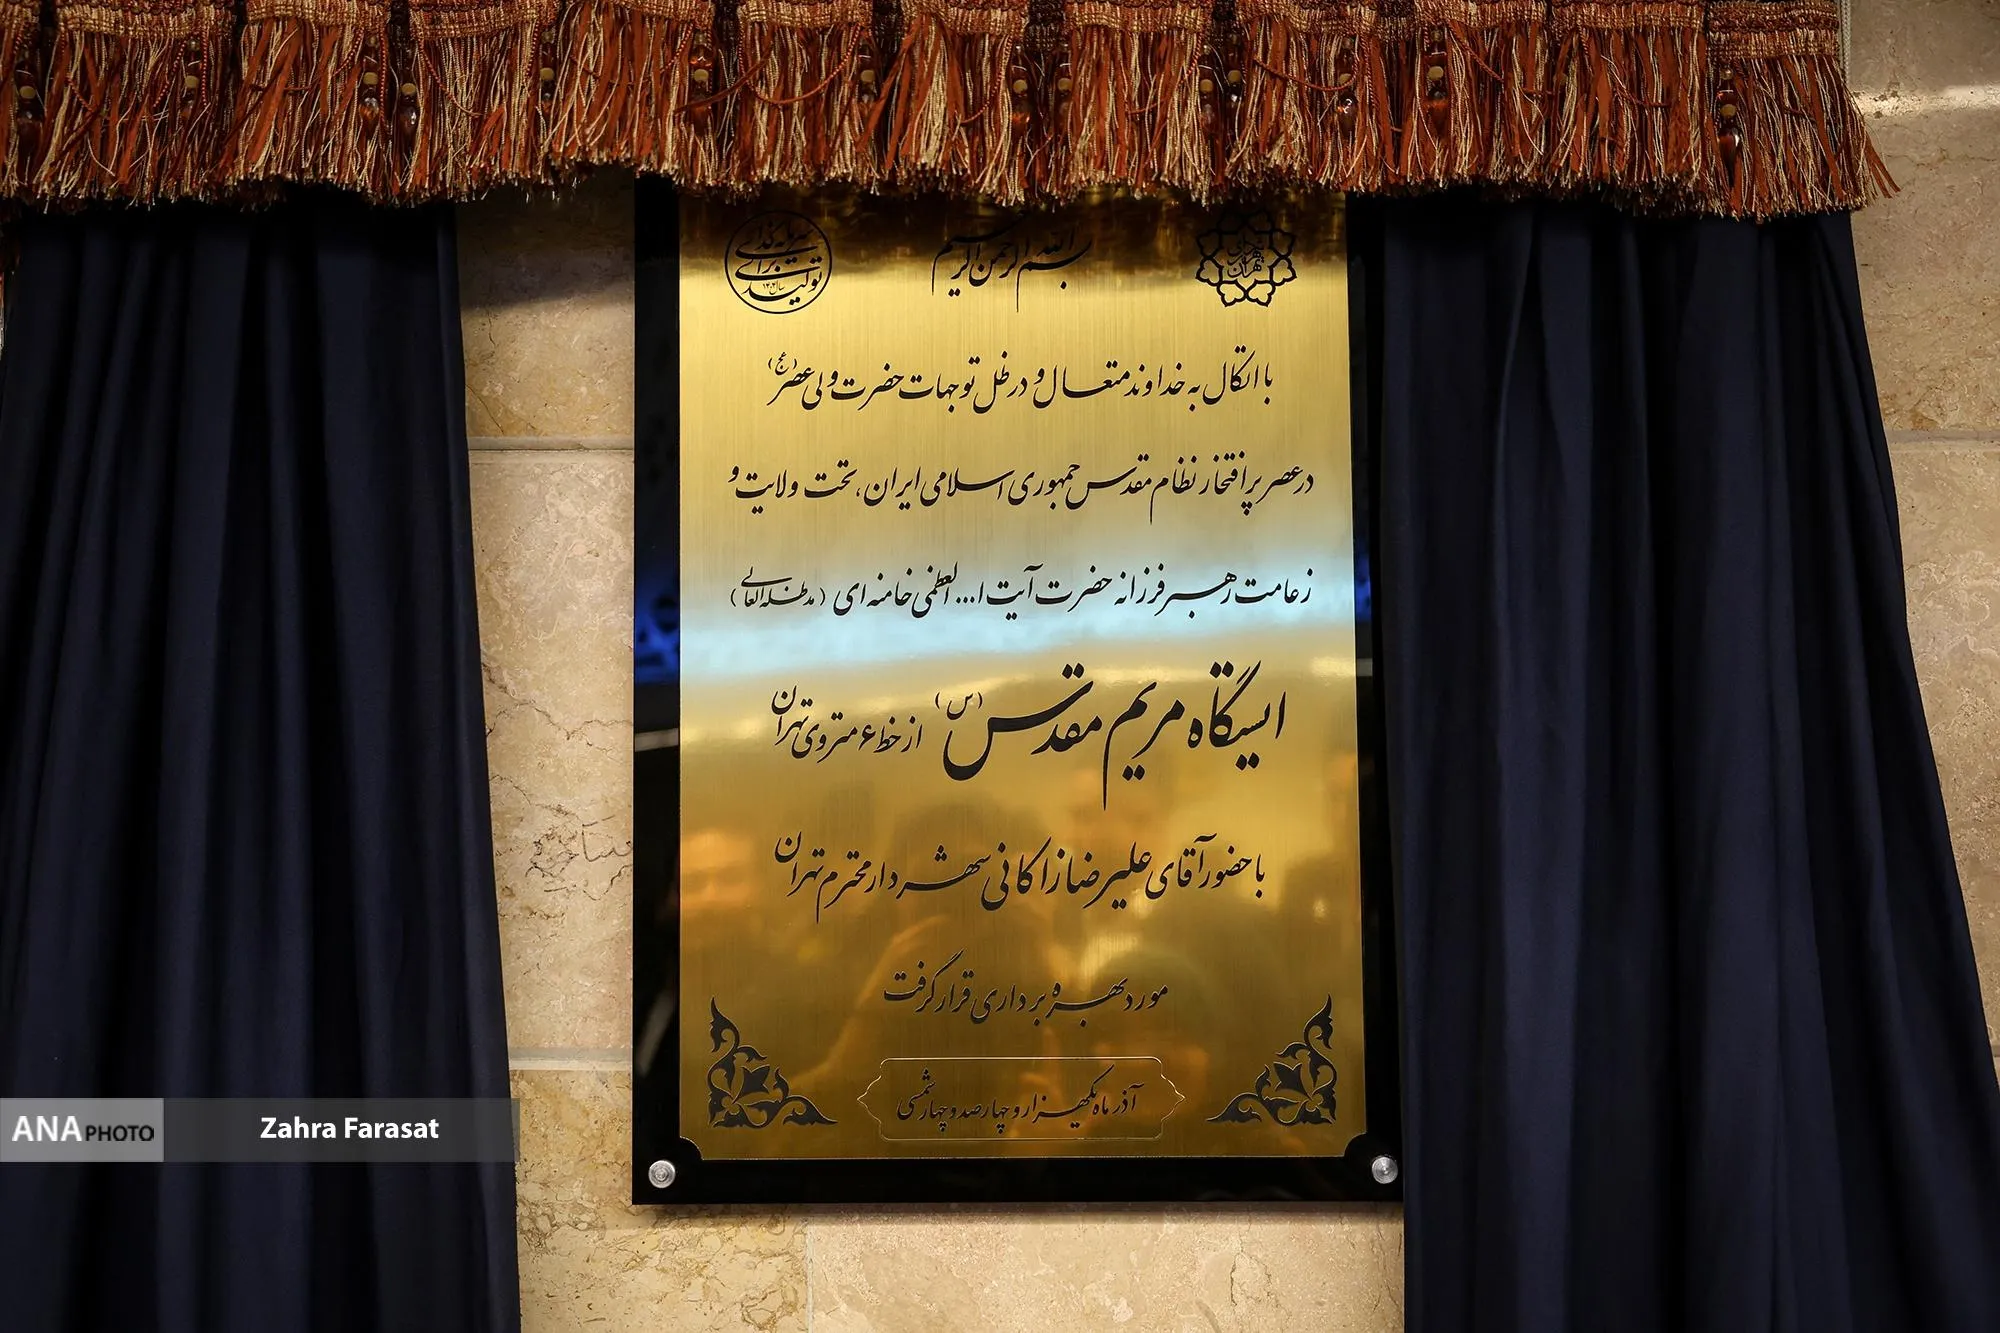 بسم الله الرحمن الرحیم
سرمایه گذاری برای تولید
سال ۱۴۰۴
شهرداری تهران
با اتکال به خداوند متعال و در ظل توجهات حضرت ولی عصر (عج)
در عصر پر افتخار نظام مقدس جمهوری اسلامی ایران، تحت ولایت و
زعامت رهبر فرزانه حضرت آیت ا... العظمی خامنه ای (مدظله العالی)
ایستگاه مریم مقدس (س) از خط ۶ متروی تهران
با حضور آقای علیرضا زاکانی شهردار محترم تهران
مورد بهره برداری قرار گرفت
آذر ماه یکهزار و چهارصد و چهار شمسی
ANA PHOTO
Zahra Farasat